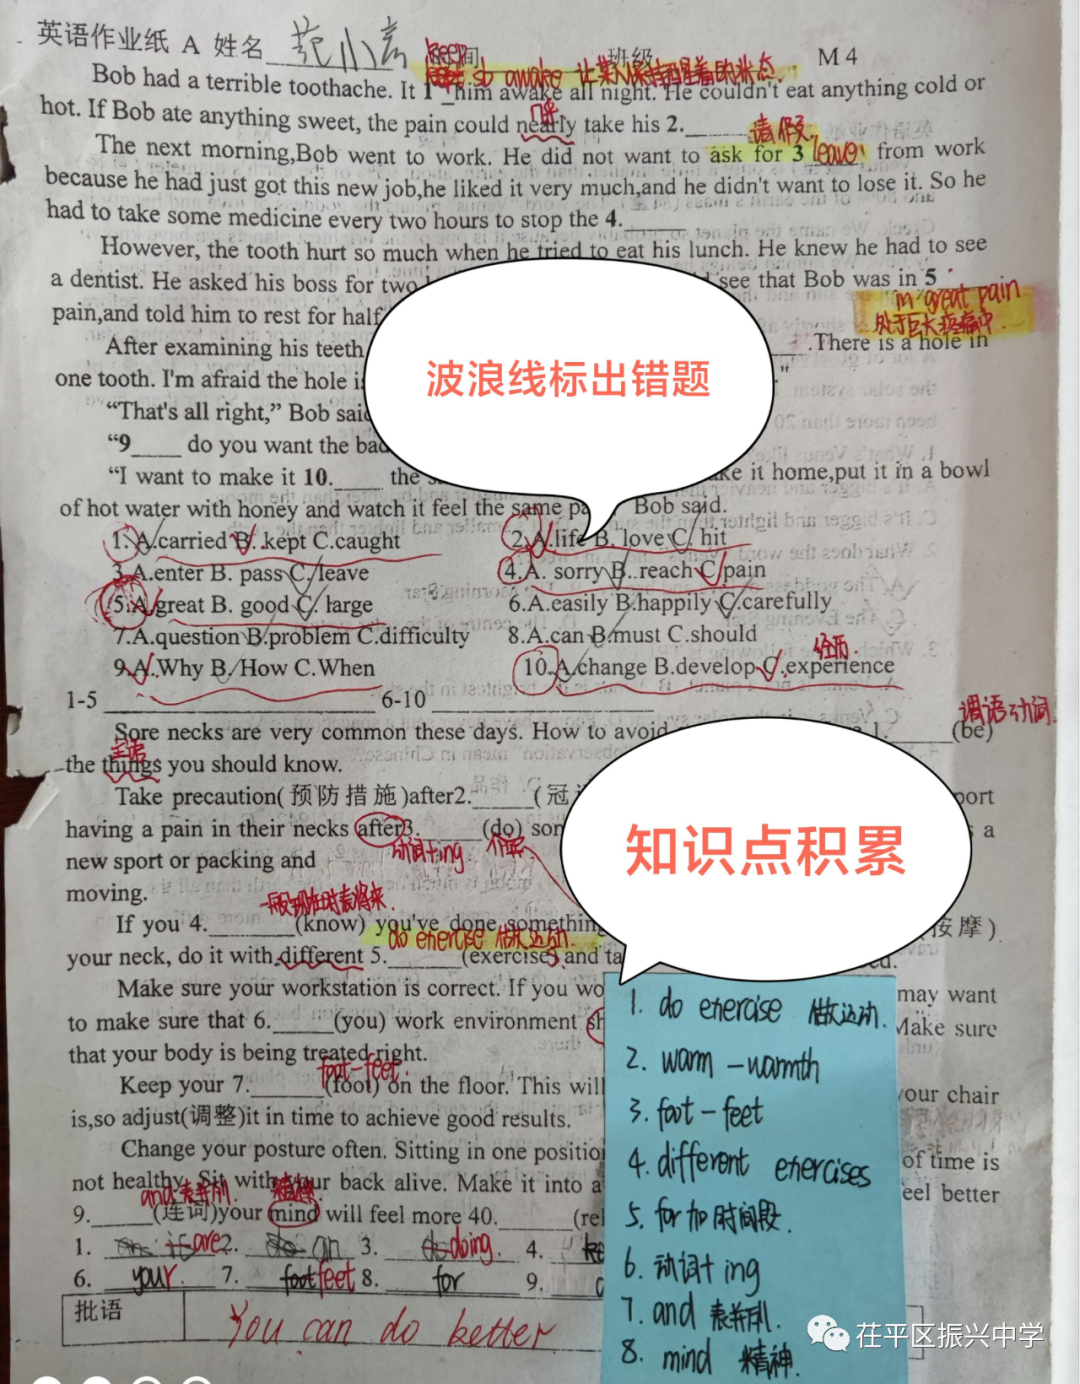 英语作业纸 A 姓名 班级 M 4
keep sb awake 让某人保持醒着的状态.
Bob had a terrible toothache. It 1 _him awake all night. He couldn't eat anything cold or
hot. If Bob ate anything sweet, the pain could nearly take his 2.____
请假
The next morning,Bob went to work. He did not want to ask for 3 leave from work
because he had just got this new job,he liked it very much,and he didn't want to lose it. So he
had to take some medicine every two hours to stop the 4.____
However, the tooth hurt so much when he tried to eat his lunch. He knew he had to see
a dentist. He asked his boss for two see that Bob was in 5
in great pain
处于巨大疼痛中
pain,and told him to rest for half
After examining his teeth .There is a hole in
one tooth. I'm afraid the hole "
“That's all right,” Bob said
“9____ do you want the bad
“I want to make it 10.____ the ke it home,put it in a bowl
of hot water with honey and watch it feel the same pa Bob said.
波浪线标出错题
1.A.carried B..kept C.caught 2.A.life B. love C. hit
3.A.enter B. pass C.leave 4.A. sorry B..reach C.pain
5.A.great B. good C. large 6.A.easily B.happily C.carefully
7.A.question B.problem C.difficulty 8.A.can B.must C.should
经历.
9.A.Why B. How C.When 10.A.change B.develop C.experience
1-5 ____ 6-10 ____
谓语动词
Sore necks are very common these days. How to avoid 1.____(be)
主语
the things you should know.
Take precaution(预防措施)after2.____(冠 port
having a pain in their necks after3.____(do) son a
动词+ing 介词
new sport or packing and
moving.
知识点积累
If you 4.____(know) you've done something 按摩)
do exercise 做运动.
your neck, do it with different 5.____(exercise),and ta ed.
Make sure your workstation is correct. If you wo may want
to make sure that 6.____(you) work environment Make sure
that your body is being treated right.
foot-feet
Keep your 7.____(foot) on the floor. This will your chair
is,so adjust(调整)it in time to achieve good results.
Change your posture often. Sitting in one position of time is
not healthy. Sit with your back alive. Make it into a eel better
and表并列. 精神
9.____(连词)your mind will feel more 40.____(rel
1. are 2. an 3. doing 4.
6. your 7. feet 8. for 9.
批语 You can do better
1. do exercise 做运动.
2. warm - warmth
3. foot - feet
4. different exercises
5. for加时间段.
6. 动词+ing
7. and 表并列.
8. mind 精神.
茌平区振兴中学